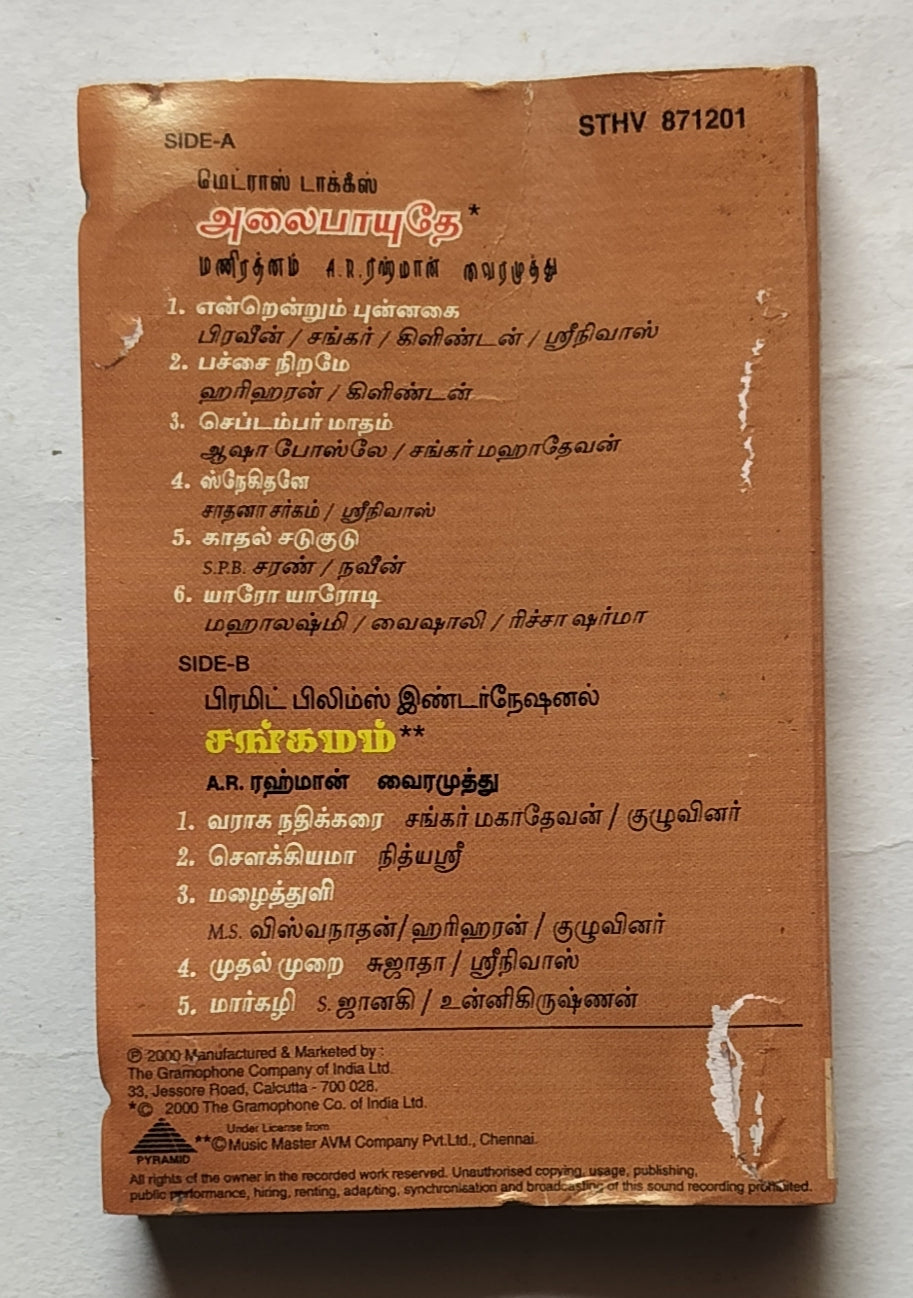 STHV 871201
SIDE-A
மெட்ராஸ் டாக்கீஸ்
அலைபாயுதே*
மணிரத்னம் A.R.ரஹ்மான் வைரமுத்து
1. என்றென்றும் புன்னகை
பிரவீன் / சங்கர் / கிளிண்டன் / ஸ்ரீநிவாஸ்
2. பச்சை நிறமே
ஹரிஹரன் / கிளிண்டன்
3. செப்டம்பர் மாதம்
ஆஷா போஸ்லே / சங்கர் மஹாதேவன்
4. ஸ்நேகிதனே
சாதனா சர்கம் / ஸ்ரீநிவாஸ்
5. காதல் சடுகுடு
S.P.B. சரண் / நவீன்
6. யாரோ யாரோடி
மஹாலஷ்மி / வைஷாலி / ரிச்சா ஷர்மா
SIDE-B
பிரமிட் பிலிம்ஸ் இண்டர்நேஷனல்
சங்கமம்**
A.R. ரஹ்மான் வைரமுத்து
1. வராக நதிக்கரை சங்கர் மகாதேவன் / குழுவினர்
2. சௌக்கியமா நித்யஸ்ரீ
3. மழைத்துளி
M.S. விஸ்வநாதன்/ஹரிஹரன் / குழுவினர்
4. முதல் முறை சுஜாதா / ஸ்ரீநிவாஸ்
5. மார்கழி S. ஜானகி / உன்னிகிருஷ்ணன்
℗ 2000 Manufactured & Marketed by :
The Gramophone Company of India Ltd.
33, Jessore Road, Calcutta - 700 028.
*© 2000 The Gramophone Co. of India Ltd.
Under License from
**©Music Master AVM Company Pvt.Ltd., Chennai.
PYRAMID
All rights of the owner in the recorded work reserved. Unauthorised copying, usage, publishing,
public performance, hiring, renting, adapting, synchronisation and broadcasting of this sound recording prohibited.